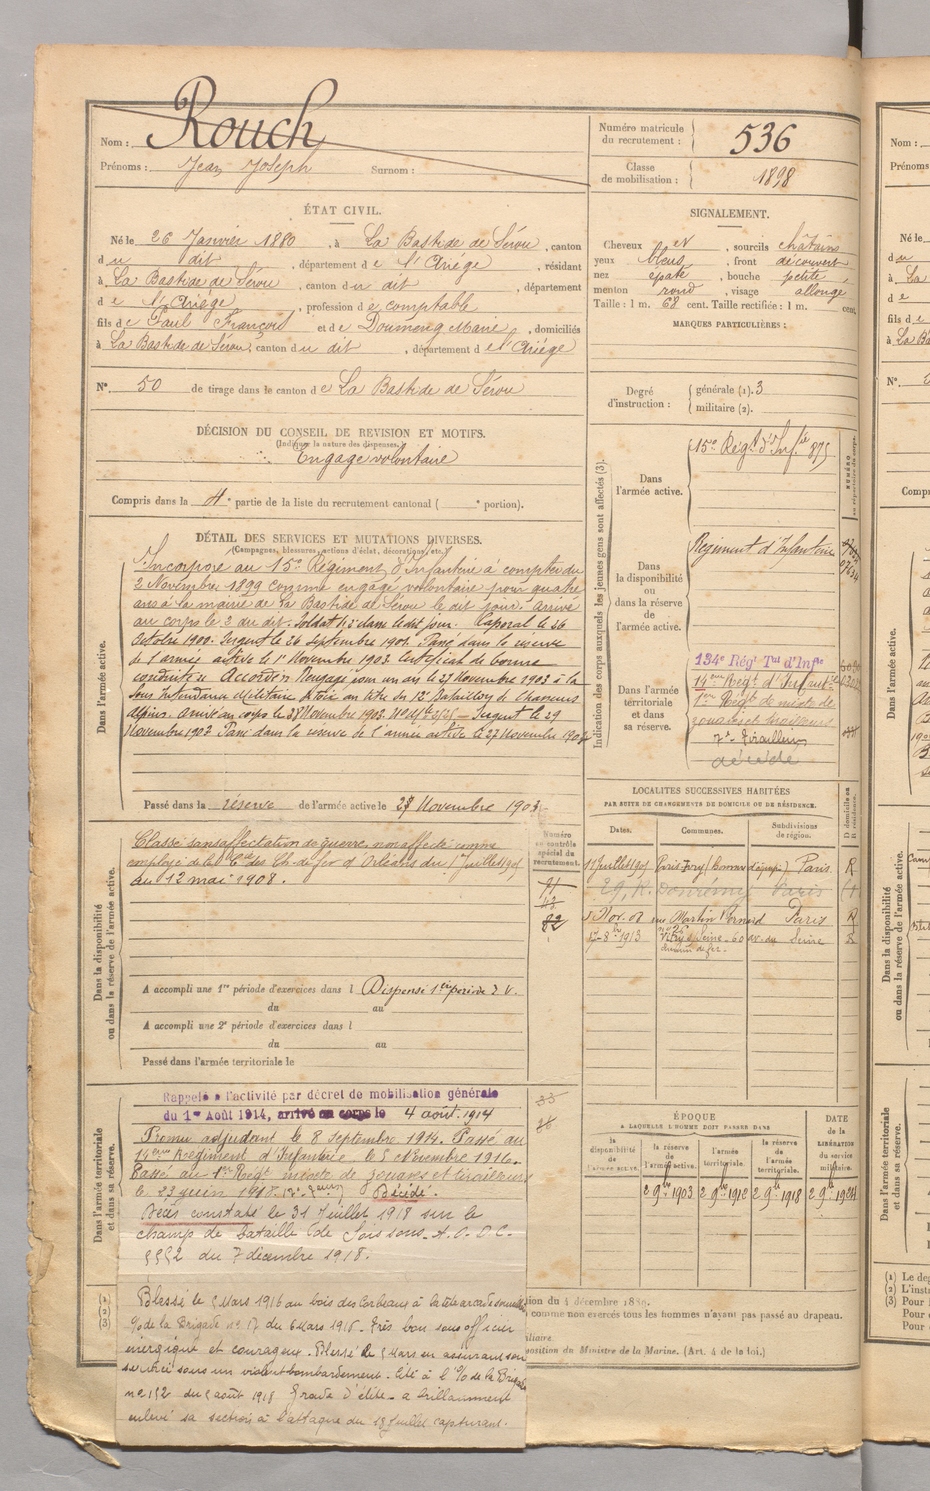 Nom : Rouch
Prénoms : Jean Joseph Surnom :
Numéro matricule du recrutement : 536
Classe de mobilisation : 1898
ÉTAT CIVIL.
Né le 26 Janvier 1880, à La Bastide de Sérou, canton
du dit, département de l'Ariége, résidant
à La Bastide de Sérou, canton du dit, département
de l'Ariége, profession de comptable
fils de Paul François et de Doumenq Marie, domiciliés
à La Bastide de Sérou, canton du dit, département de l'Ariége
N° 50 de tirage dans le canton de La Bastide de Sérou
SIGNALEMENT.
Cheveux et, sourcils châtains
yeux bleus, front découvert
nez épaté, bouche petite
menton rond, visage allongé
Taille : 1 m. 68 cent. Taille rectifiée : 1 m. cent.
MARQUES PARTICULIÈRES :
Degré d'instruction : générale (1). 3
militaire (2).
DÉCISION DU CONSEIL DE REVISION ET MOTIFS.
(Indiquer la nature des dispenses.)
Engagé volontaire
Compris dans la 4e partie de la liste du recrutement cantonal ( e portion).
DÉTAIL DES SERVICES ET MUTATIONS DIVERSES.
(Campagnes, blessures, actions d'éclat, décorations, etc.)
Dans l'armée active.
Incorporé au 15e Régiment d'Infanterie à compter du
2 Novembre 1899 comme engagé volontaire pour quatre
ans à la mairie de La Bastide de Sérou le dit jour. Arrivé
au corps le 2 du dit. Soldat de 2e classe le dit jour. Caporal le 26
Octobre 1900. Sergent le 26 Septembre 1901. Passé dans la réserve
de l'armée active le 1er Novembre 1903. Certificat de bonne
conduite Accordé. Rengagé pour un an le 27 Novembre 1903 à la
Sous Intendance Militaire de Foix au titre du 12e Bataillon de Chasseurs
Alpins. Arrivé au corps le 28 Novembre 1903. Sergent le 29
Novembre 1903. Passé dans la réserve de l'armée active le 27 Novembre 1904
Passé dans la réserve de l'armée active le 27 Novembre 1903
Indication des corps auxquels les jeunes gens sont affectés (3).
Dans l'armée active.
15e Régt d'Infie 875
Dans la disponibilité ou dans la réserve de l'armée active.
Régiment d'Infanterie
Dans l'armée territoriale et dans sa réserve.
134e Régt Tal d'Infie
14ème Régt d'Infanterie
1er Régt de mixte de
zouaves et tirailleurs
7e Tirailleurs
décédé
LOCALITÉS SUCCESSIVES HABITÉES
PAR SUITE DE CHANGEMENTS DE DOMICILE OU DE RÉSIDENCE.
Dates. Communes. Subdivisions de région. D domicile ou R résidence.
11 Juillet 1905 Paris Ivry Paris R
29, R. Domrémy Paris
5 Nov. 08 rue Martin Bernard Paris R
1913 Vitry s/ Seine 60 av. du chemin de fer. Seine R
Numéro au contrôle spécial du recrutement.
91
43
82
Dans la disponibilité ou dans la réserve de l'armée active.
Classé sans affectation de guerre, non affecté comme
employé de la Cie des Ch. de fer d'Orléans du 1er Juillet 1905
au 12 mai 1908.
A accompli une 1re période d'exercices dans l Dispensé 1ère période S. V.
du au
A accompli une 2e période d'exercices dans l
du au
Passé dans l'armée territoriale le
Dans l'armée territoriale et dans sa réserve.
Rappelé à l'activité par décret de mobilisation générale
du 1er Août 1914, arrivé au corps le 4 août 1914
Promu adjudant le 8 septembre 1914. Passé au
14ème Régiment d'Infanterie le 5 décembre 1916.
Passé au 1er Régt mixte de zouaves et tirailleurs
le 23 juin 1918. Décédé.
Décès constaté le 31 Juillet 1918 sur le
champ de bataille de Soissons. A. D. D. C.
5552 du 7 décembre 1918.
ÉPOQUE
A LAQUELLE L'HOMME DOIT PASSER DANS
la disponibilité de l'armée active. la réserve de l'armée active. l'armée territoriale. la réserve de l'armée territoriale. DATE de la LIBÉRATION du service militaire.
2 9bre 1903 2 9bre 1912 2 9bre 1918 2 9bre 1924
Blessé le 5 Mars 1916 au bois des Corbeaux à la tête
o/o de la Brigade no 17 du 6 Mars 1916. Très bon sous officier
énergique et courageux. Blessé le 5 Mars en assurant son
service sous un violent bombardement. Cité à l'o/o de la Brigade
no 152 du 5 août 1918 Gradé d'élite a brillamment
enlevé sa section à l'attaque du 18 Juillet capturant.
(1)
(2)
(3)
ion du 4 décembre 1889.
comme non exercés tous les hommes n'ayant pas passé au drapeau.
iliaire.
position du Ministre de la Marine. (Art. 4 de la loi.)